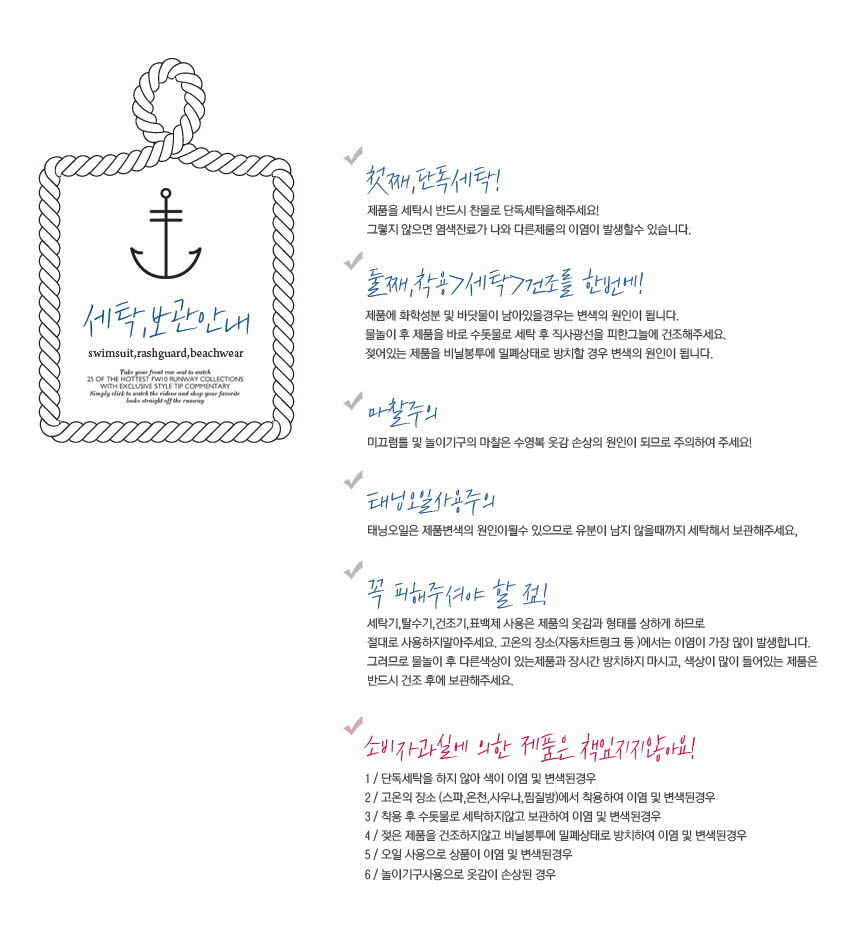 세탁,보관안내
swimsuit,rashguard,beachwear
Take your front row seat to watch
25 OF THE HOTTEST FW10 RUNWAY COLLECTIONS
WITH EXCLUSIVE STYLE TIP COMMENTARY
Simply click to watch the videos and shop your favorite
looks straight off the runway
첫째,단독세탁!
제품을 세탁시 반드시 찬물로 단독세탁을해주세요!
그렇지 않으면 염색잔료가 나와 다른제룸의 이염이 발생할수 있습니다.
둘째,착용>세탁>건조를 한번에!
제품에 화학성분 및 바닷물이 남아있을경우는 변색의 원인이 됩니다.
물놀이 후 제품을 바로 수돗물로 세탁 후 직사광선을 피한그늘에 건조해주세요.
젖어있는 제품을 비닐봉투에 밀폐상태로 방치할 경우 변색의 원인이 됩니다.
마찰주의
미끄럼틀 및 놀이기구의 마찰은 수영복 옷감 손상의 원인이 되므로 주의하여 주세요!
태닝오일사용주의
태닝오일은 제품변색의 원인이될수 있으므로 유분이 남지 않을때까지 세탁해서 보관해주세요,
꼭 피해주셔야 할 점!
세탁기,탈수기,건조기,표백제 사용은 제품의 옷감과 형태를 상하게 하므로
절대로 사용하지말아주세요. 고온의 장소(자동차트렁크 등 )에서는 이염이 가장 많이 발생합니다.
그러므로 물놀이 후 다른색상이 있는제품과 장시간 방치하지 마시고, 색상이 많이 들어있는 제품은
반드시 건조 후에 보관해주세요.
소비자과실에 의한 제품은 책임지지않아요!
1 / 단독세탁을 하지 않아 색이 이염 및 변색된경우
2 / 고온의 장소 (스파,온천,사우나,찜질방)에서 착용하여 이염 및 변색된경우
3 / 착용 후 수돗물로 세탁하지않고 보관하여 이염 및 변색된경우
4 / 젖은 제품을 건조하지않고 비닐봉투에 밀폐상태로 방치하여 이염 및 변색된경우
5 / 오일 사용으로 상품이 이염 및 변색된경우
6 / 놀이기구사용으로 옷감이 손상된 경우